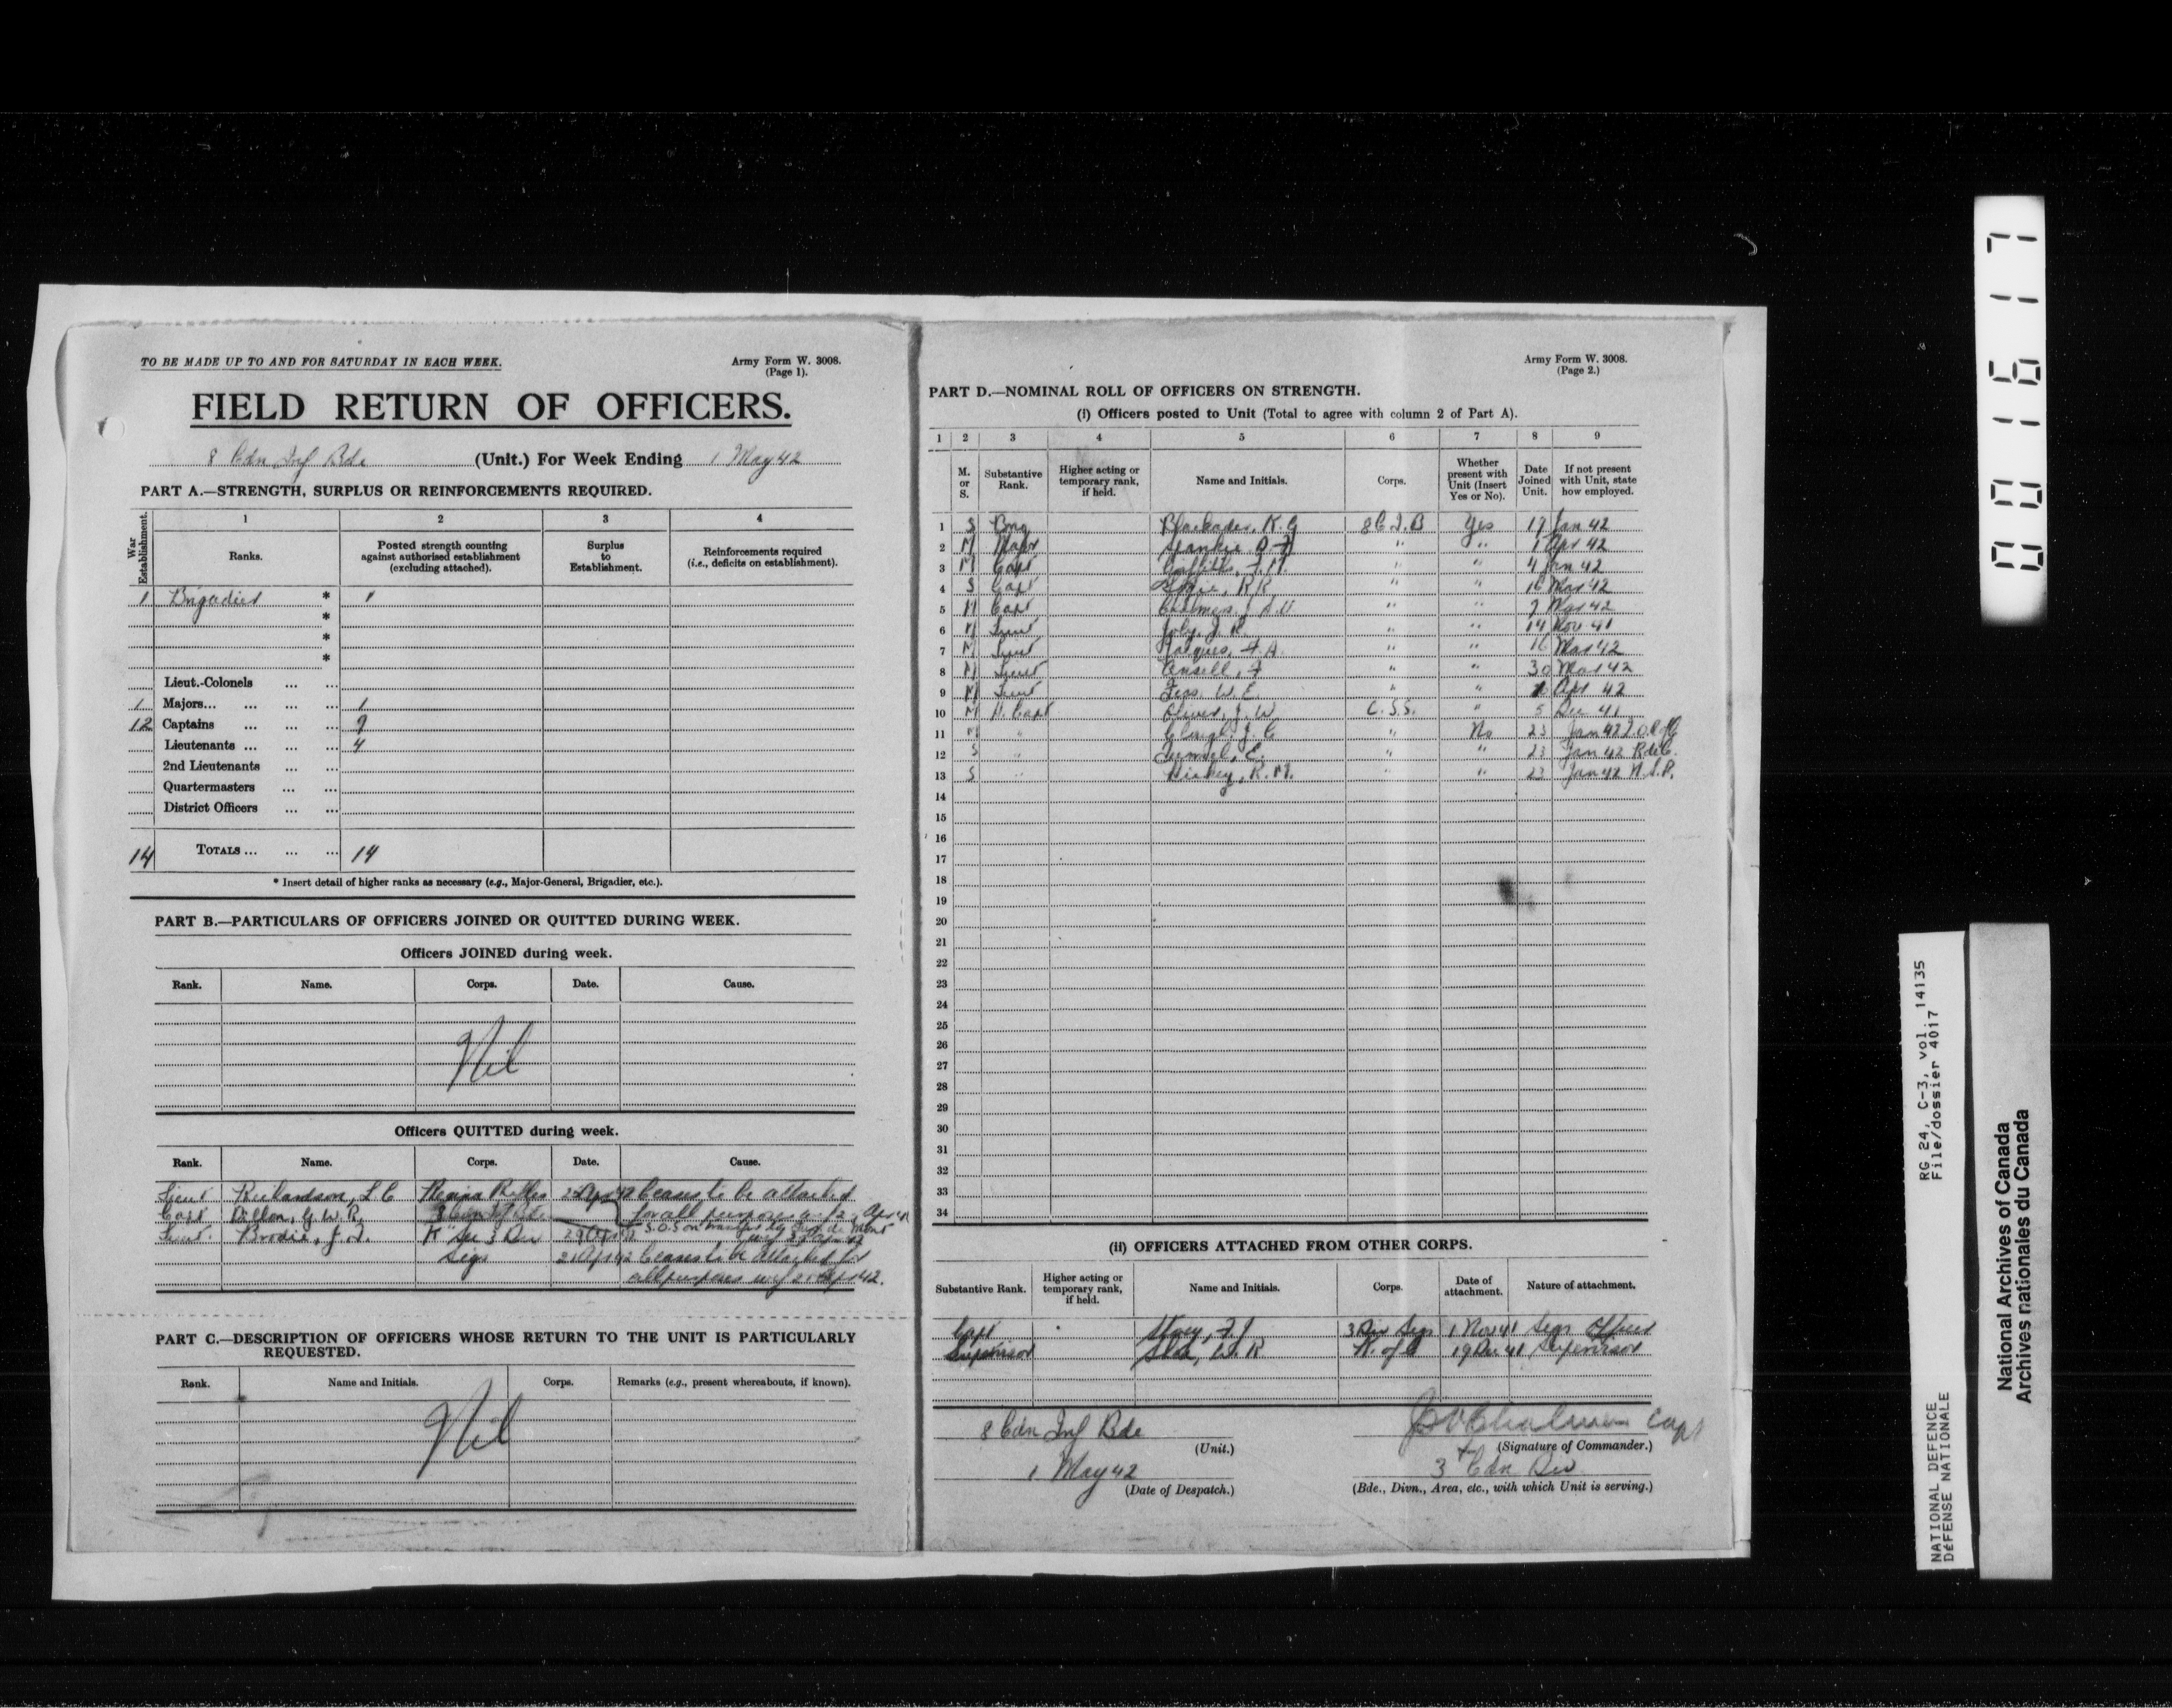 TO BE MADE UP TO AND FOR SATURDAY IN EACH WEEK.
Army Form W. 3008.
(Page 1).
FIELD RETURN OF OFFICERS.
8 Cdn Inf Bde (Unit.) For Week Ending 1 May 42
PART A.—STRENGTH, SURPLUS OR REINFORCEMENTS REQUIRED.
War Establishment.
1 2 3 4
Ranks.
Posted strength counting against authorised establishment (excluding attached).
Surplus to Establishment.
Reinforcements required (i.e., deficits on establishment).
1 Brigadier * 1
*
*
*
Lieut.-Colonels ... ...
1 Majors... ... ... ... 1
12 Captains ... ... ...
Lieutenants ... ... ... 4
2nd Lieutenants ... ...
Quartermasters ... ...
District Officers ... ...
14 TOTALS ... ... ... 14
* Insert detail of higher ranks as necessary (e.g., Major-General, Brigadier, etc.).
PART B.—PARTICULARS OF OFFICERS JOINED OR QUITTED DURING WEEK.
Officers JOINED during week.
Rank. Name. Corps. Date. Cause.
Nil
Officers QUITTED during week.
Rank. Name. Corps. Date. Cause.
Lieut Richardson, L C Regina Rifles Ceases to be attached
Capt Dillon, G. W. R. for all purposes
Lieut. Brodie, J. 3 Div
Sigs 21 Apr 42 Ceases to be attached for
all purposes wef 21 Apr 42.
PART C.—DESCRIPTION OF OFFICERS WHOSE RETURN TO THE UNIT IS PARTICULARLY
REQUESTED.
Rank. Name and Initials. Corps. Remarks (e.g., present whereabouts, if known).
Nil
Army Form W. 3008.
(Page 2.)
PART D.—NOMINAL ROLL OF OFFICERS ON STRENGTH.
(i) Officers posted to Unit (Total to agree with column 2 of Part A).
1 2 3 4 5 6 7 8 9
M. or S.
Substantive Rank.
Higher acting or temporary rank, if held.
Name and Initials.
Corps.
Whether present with Unit (Insert Yes or No).
Date Joined Unit.
If not present with Unit, state how employed.
1 S Brig Blackader, K. G 8 C.I.B Yes 17 Jan 42
2 M Major " " 1 Apr 42
3 M Capt Griffiths, F. M. " " 4 Jan 42
4 S Capt R R " " 16 Mar 42
5 M Capt Chalmers, " " 7 Mar 42
6 M Lieut Joly, J. R. " " 14 Nov 41
7 M Lieut Jacques, F. A " " 16 Mar 42
8 M Lieut Ansell, F " " 30 Mar 42
9 M Lieut W. E. " " Apr 42
10 M H. Capt Oliver, J. W C.S.S. " 5 Dec 41
11 M " Clough J. C " No 23 Jan 42
12 S E. " " 23 Jan 42 R de C.
13 S " Hickey, R. M. " " 23 Jan 42 N.S.R.
14
15
16
17
18
19
20
21
22
23
24
25
26
27
28
29
30
31
32
33
34
(ii) OFFICERS ATTACHED FROM OTHER CORPS.
Substantive Rank.
Higher acting or temporary rank, if held.
Name and Initials.
Corps.
Date of attachment.
Nature of attachment.
Capt 3 Div Sigs 1 Nov 41 Sigs Officer
Supervisor W. R K. of C 19 Dec. 41 Supervisor
8 Cdn Inf Bde
(Unit.)
Chalmers Capt
(Signature of Commander.)
1 May 42
(Date of Despatch.)
3 Cdn Div
(Bde., Divn., Area, etc., with which Unit is serving.)
001617
RG 24, C-3, vol. 14135
File/dossier 4017
NATIONAL DEFENCE
DÉFENSE NATIONALE
National Archives of Canada
Archives nationales du Canada